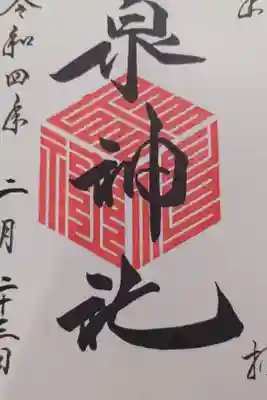 泉神社
令和四年
二月二十三日